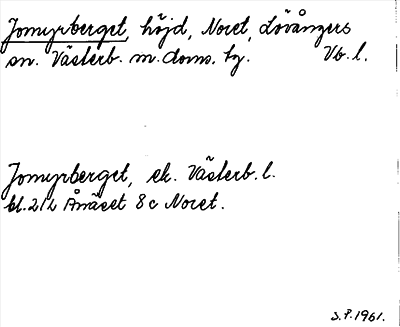 Jomyrberget, höjd, Noret, Lövångers
sn. Västerb. m. doms. tg. Vb. l.
Jomyrberget, ek. Västerb. l.
bl. 212 Ånäset 8c Noret.
S.P. 1961.